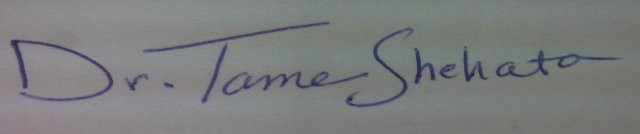 Dr. Tame Shehata